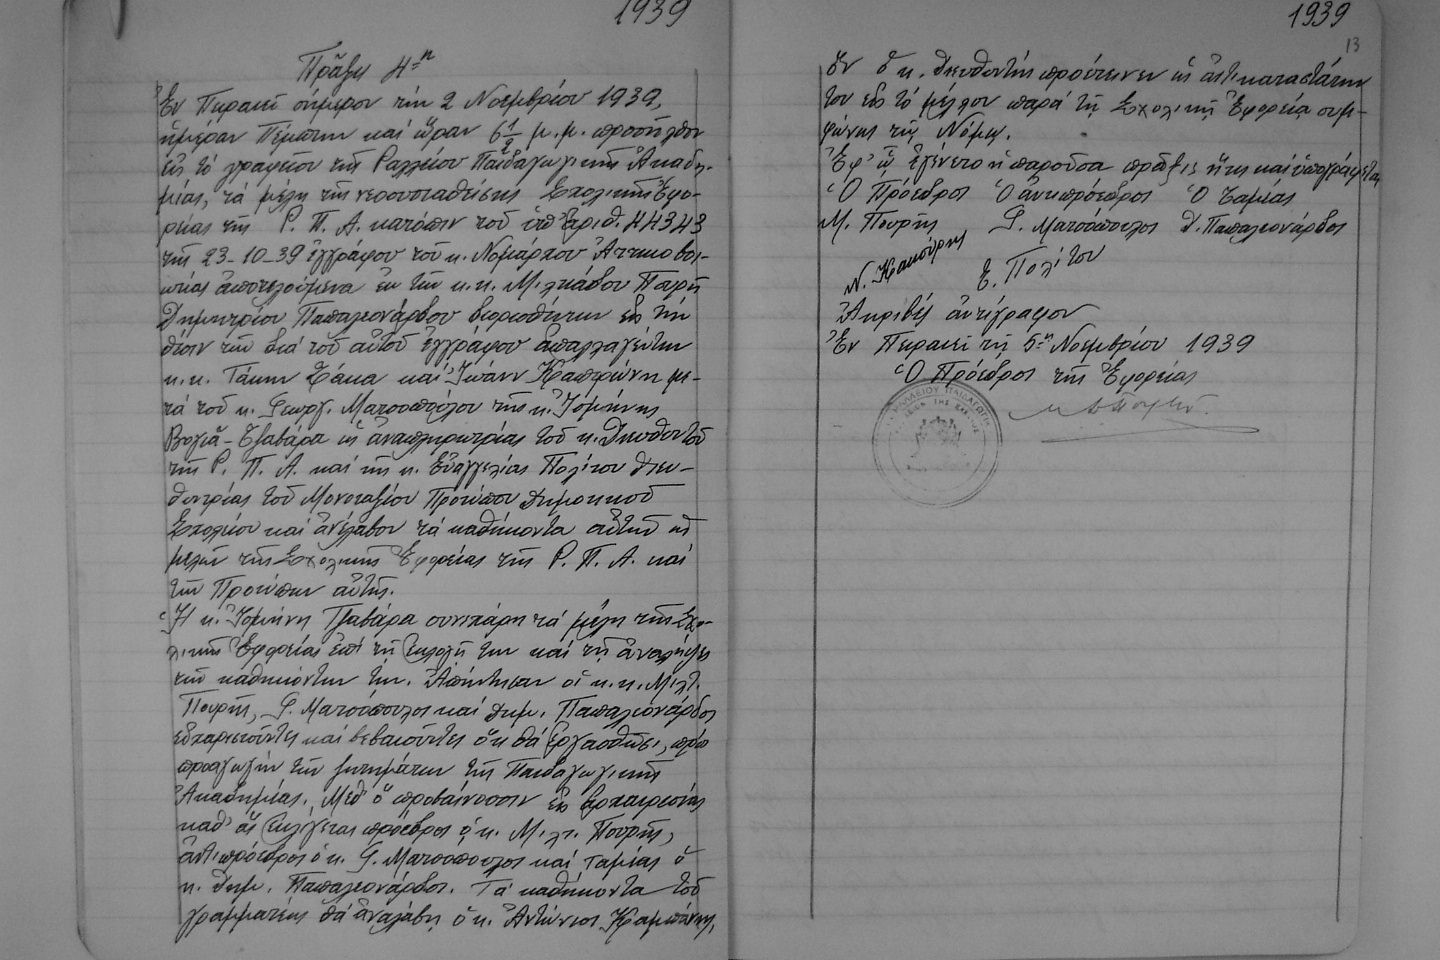 1939
Πρᾶξις 4η
Ἐν Πειραιεῖ σήμερον τὴν 2 Νοεμβρίου 1939,
ἡμέραν Πέμπτην καὶ ὥραν 6 1/2 μ.μ. προσῆλθον
εἰς τὸ γραφεῖον τῆς Ραλλείου Παιδαγωγικῆς Ἀκαδη-
μίας, τὰ μέλη τῆς νεοσυσταθείσης Σχολικῆς Ἐφο-
ρείας τῆς Ρ. Π. Α. κατόπιν τοῦ ὑπ' ἀριθ. 44343
τῆς 23-10-39 ἐγγράφου τοῦ κ. Νομάρχου Ἀττικοβοι-
ωτίας ἀποτελούμενα ἐκ τῶν κ.κ. Μιλτιάδου Πουρῆ
Δημητρίου Παπαλεονάρδου διορισθέντων εἰς τὴν
θέσιν τῶν διὰ τοῦ αὐτοῦ ἐγγράφου ἀπαλλαγέντων
κ.κ. Τάκη καὶ Ἰωάνν. με-
τὰ τοῦ κ. Γεωργ. Ματσοπούλου τῆς κ. Ἰσμήνης
Βογιᾶ - Τζαβάρα ὡς ἀναπληρωτρίας τοῦ κ. Διευθυντοῦ
τῆς Ρ. Π. Α. καὶ τῆς κ. Εὐαγγελίας Πολίτου διευ-
θυντρίας τοῦ Μονοταξίου Προτύπου Δημοτικοῦ
Σχολείου καὶ ἀνέλαβον τὰ καθήκοντα αὐτῶν ὡς
μελῶν τῆς Σχολικῆς Ἐφορείας τῆς Ρ. Π. Α. καὶ
τῶν Προτύπων αὐτῆς.
Ἡ κ. Ἰσμήνη Τζαβάρα συνεχάρη τὰ μέλη τῆς Σχο-
λικῆς Ἐφορείας ἐπὶ τῇ ἐκλογῇ των καὶ τῇ ἀναλήψει
τῶν καθηκόντων των. Ἀπήντησαν οἱ κ.κ. Μιλτ.
Πουρῆς, Γ. Ματσόπουλος καὶ Δημ. Παπαλεονάρδος
εὐχαριστοῦντες καὶ βεβαιοῦντες ὅτι θὰ ἐργασθῶσι, πρὸς
προαγωγὴν τῶν ζητημάτων τῆς Παιδαγωγικῆς
Ἀκαδημίας. Μεθ' ὃ προβαίνουσιν εἰς ἀρχαιρεσίας
καθ' ἃς ἐκλέγεται πρόεδρος ὁ κ. Μιλτ. Πουρῆς,
ἀντιπρόεδρος ὁ κ. Γ. Ματσόπουλος καὶ ταμίας ὁ
κ. Δημ. Παπαλεονάρδος. Τὰ καθήκοντα τοῦ
γραμματέως θὰ ἀναλάβῃ ὁ κ. Ἀντώνιος
1939
13
ὃν ὁ κ. Διευθυντὴς προύτεινεν ὡς ἀντικαταστάτην
του εἰς τὸ μέλλον παρὰ τῇ Σχολικῇ Ἐφορείᾳ συμ-
φώνως τῷ Νόμῳ.
Ἐφ' ᾧ ἐγένετο ἡ παροῦσα πρᾶξις ἥτις καὶ ὑπογράφεται
Ὁ Πρόεδρος Ὁ ἀντιπρόεδρος Ὁ Ταμίας
Μ. Πουρῆς Γ. Ματσόπουλος Δ. Παπαλεονάρδος
Ε. Πολίτου
Ἀκριβὲς ἀντίγραφον
Ἐν Πειραιεῖ τῇ 5ῃ Νοεμβρίου 1939
Ὁ Πρόεδρος τῆς Ἐφορείας